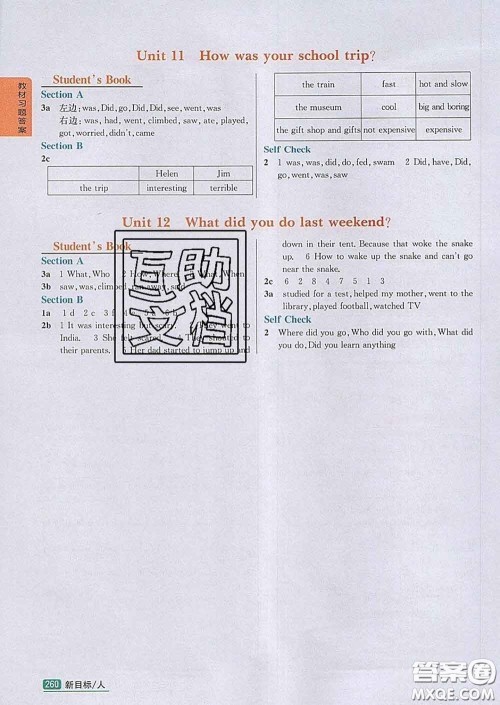 Unit 11 How was your school trip?
教材习题答案
Student's Book
Section A
3a 左边: was, Did, go, Did, Did, see, went, was
右边: was, had, went, climbed, saw, ate, played,
got, worried, didn't, came
Section B
2c
Helen Jim
the trip interesting terrible
the train fast hot and slow
the museum cool big and boring
the gift shop and gifts not expensive expensive
Self Check
2 1 was, was, did, do, fed, swam 2 Did, have, Did,
go, went, was, saw
Unit 12 What did you do last weekend?
Student's Book
Section A
3a 1 What, Who 2 How, Where 3 What, When
3b saw, was, climbed, ran away, said
Section B
1a 1 d 2 c 3 f
2b 1 It was interesting but scary. went to
India. 3 She felt scared shouted to
their parents. Her dad started to jump up and
down in their tent. Because that woke the snake
up. 6 How to wake up the snake and can't go
near the snake.
2c 6 2 8 4 7 5 1 3
3a studied for a test, helped my mother, went to the
library, played football, watched TV
Self Check
2 Where did you go, Who did you go with, What did
you do, Did you learn anything
互助文档
260 新目标/人
答案圈
MXQE.COM